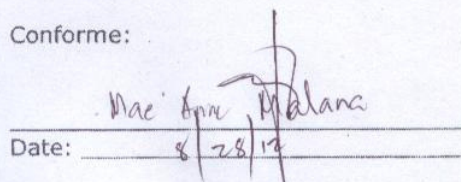 Conforme:
Mae Ann Malana
Date: 8/28/12